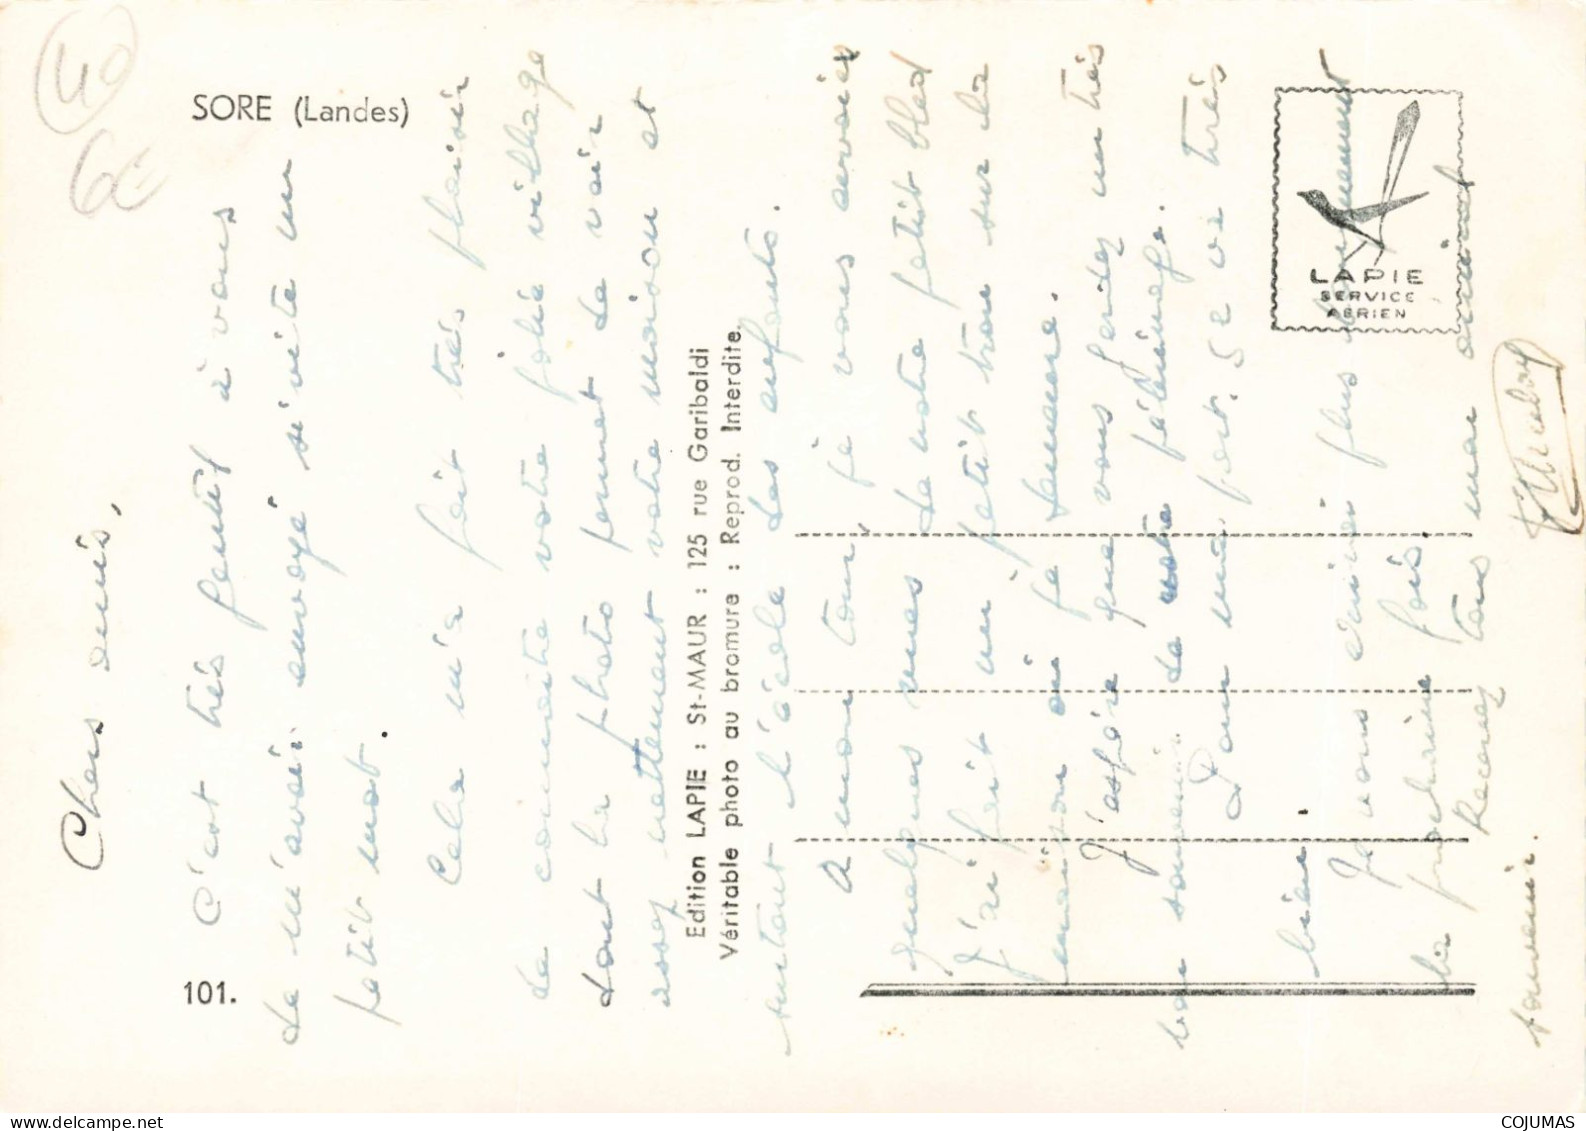 40
6€
SORE (Landes)
101.
LAPIE
SERVICE
AERIEN
Edition LAPIE : St-MAUR : 125 rue Garibaldi
Véritable photo au bromure : Reprod. Interdite.
Chers amis,
C'est très gentil à vous
de m'avoir envoyé si vite un
petit mot.
Cela m'a fait très plaisir
de connaître votre jolie village
dont la photo permet de voir
assez nettement votre maison et
surtout l'école des enfants.
A mon tour, je vous envoies
quelques vues de notre petit bled
J'ai fait un petit trou sur la
maison où je demeure.
J'espère que vous gardez un très
bon souvenir de votre pélérinage.
Pour ma part, ça va très
bien.
Je vous écrirai plus longuement
la prochaine fois.
Recevez tous mon amical
souvenir.
www.delcampe.net
COJUMAS